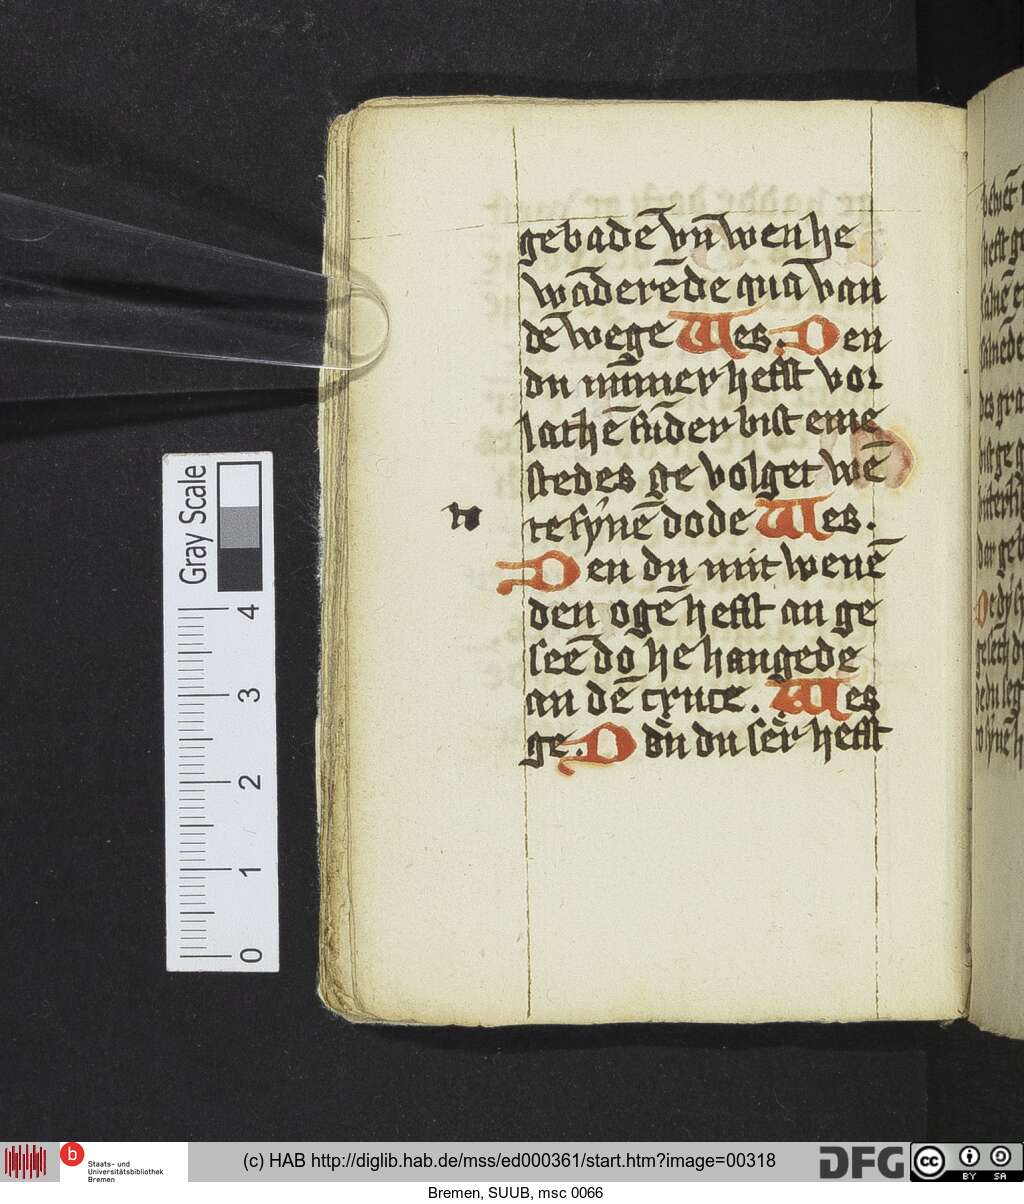 gebadē vn̄ wen he
wāderēde quā van
dē wege Wes. Den
du nūmer hefft vor
lathē sūder bist eme
stedes ge volget wē
to
te synē dode Wes.
Den du mit wenē
den ogē hefft an ge
seē do he hangede
an dē cruce. Wes
ge. O du ser hefft
Gray Scale
4
3
2
1
0
b
Staats- und
Universitätsbibliothek
Bremen
(c) HAB http://diglib.hab.de/mss/ed000361/start.htm?image=00318
DFG
cc
BY SA
Bremen, SUUB, msc 0066